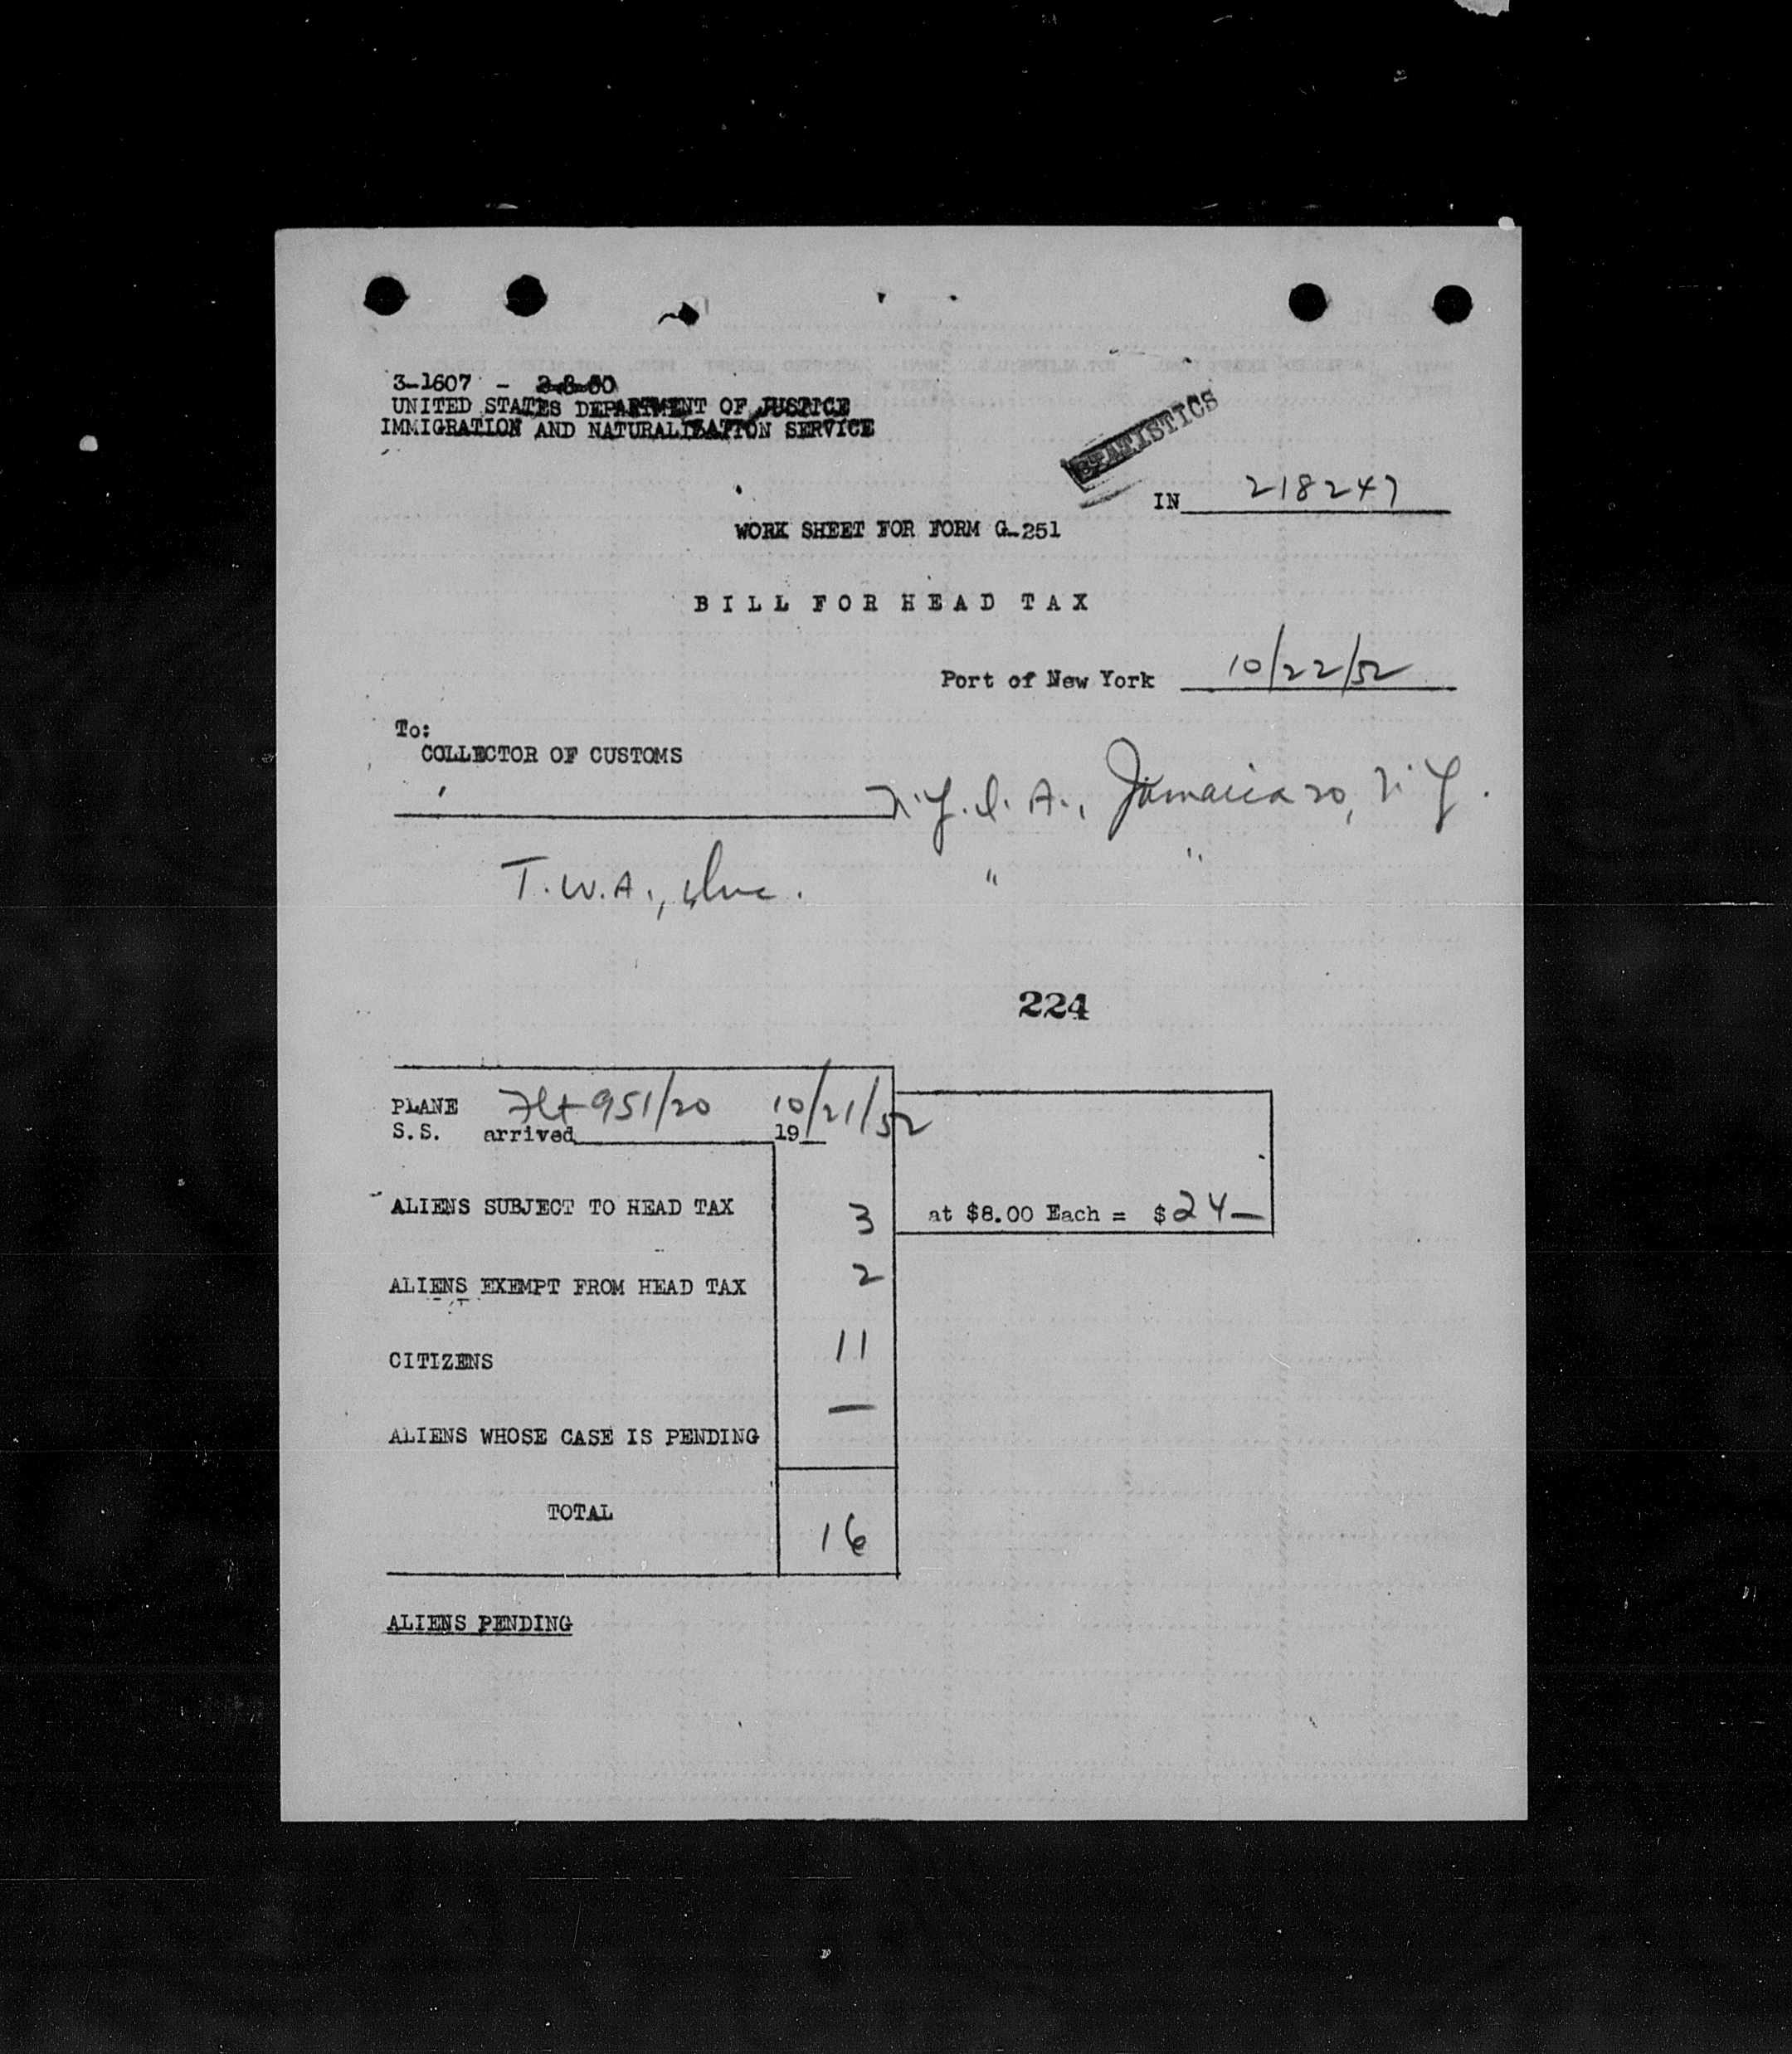 3-1607 - 2-8-50
UNITED STATES DEPARTMENT OF JUSTICE
IMMIGRATION AND NATURALIZATION SERVICE
STATISTICS
IN 218247
WORK SHEET FOR FORM G-251
BILL FOR HEAD TAX
Port of New York 10/22/52
To:
COLLECTOR OF CUSTOMS
N.Y.I.A., Jamaica 20, N.Y.
T.W.A., Inc. " "
224
PLANE Flt 951/20 10/21/52
S.S. arrived 19
ALIENS SUBJECT TO HEAD TAX 3 at $8.00 Each = $24—
ALIENS EXEMPT FROM HEAD TAX 2
CITIZENS 11
ALIENS WHOSE CASE IS PENDING —
TOTAL 16
ALIENS PENDING